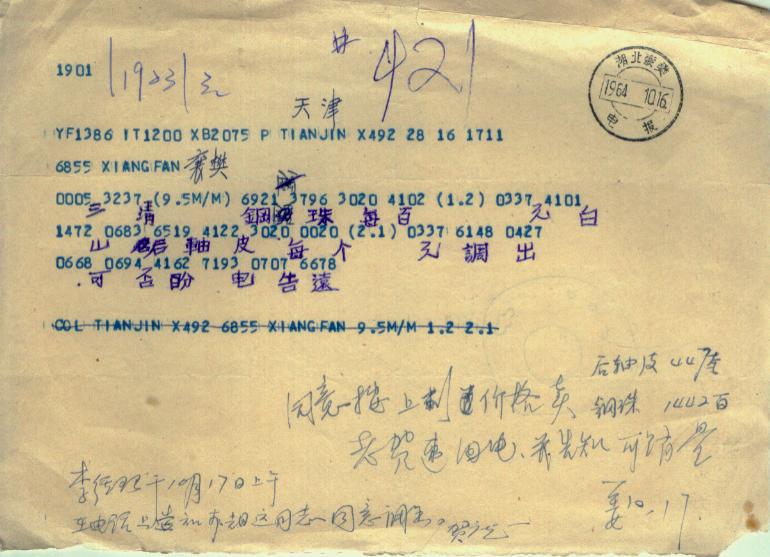 1901 11923 元
# 421
湖北襄樊
1964. 10.16.
电报
天津
YF1386 IT1200 XB2075 P TIANJIN X492 28 16 1711
6855 XIANGFAN 襄樊
0005 3237 (9.5M/M) 6921 3796 3020 4102 (1.2) 0337 4101
三 清 鋼 珠 每 百 元 白
1472 0683 6519 4122 3020 0020 (2.1) 0337 6148 0427
山 后 軸 皮 每 个 元 調 出
0668 0694 4162 7193 0707 6678
可 否 盼 电 告 遠
COL TIANJIN X492 6855 XIANGFAN 9.5M/M 1.2 2.1
后轴皮 447套
鋼珠 1442百
同意按上列价格卖
速回电、并告知可销量
姜10.17.
于10月17日上午
同志同意调出。